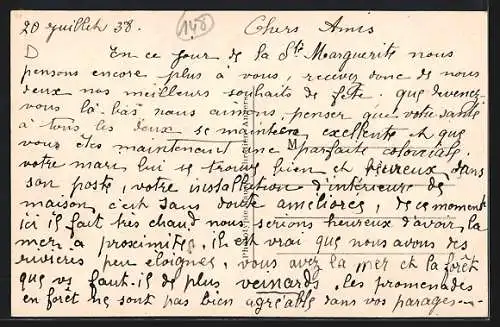 20 juillet 38. 148 Chers Amis
En ce jour de la Ste Marguerite nous
pensons encore plus à vous, recevez donc de nous
deux nos meilleurs souhaits de fête. que devenez-
vous là-bas nous aimons penser que votre santé
à tous les deux se maintiens excellente et que
vous êtes maintenant une parfaite coloniale.
votre mari lui se trouve bien et heureux dans
son poste, votre installation d'intérieur de
maison c'est sans doute améliorée, de ce moment
ici il fait très chaud nous serions heureux d'avoir la
mer à proximité, il est vrai que nous avons des
rivières peu éloignes, vous avez la mer et la forêt
que vs faut-il de plus veinards, les promenades
en forêt ne sont pas bien agréable dans vos parages